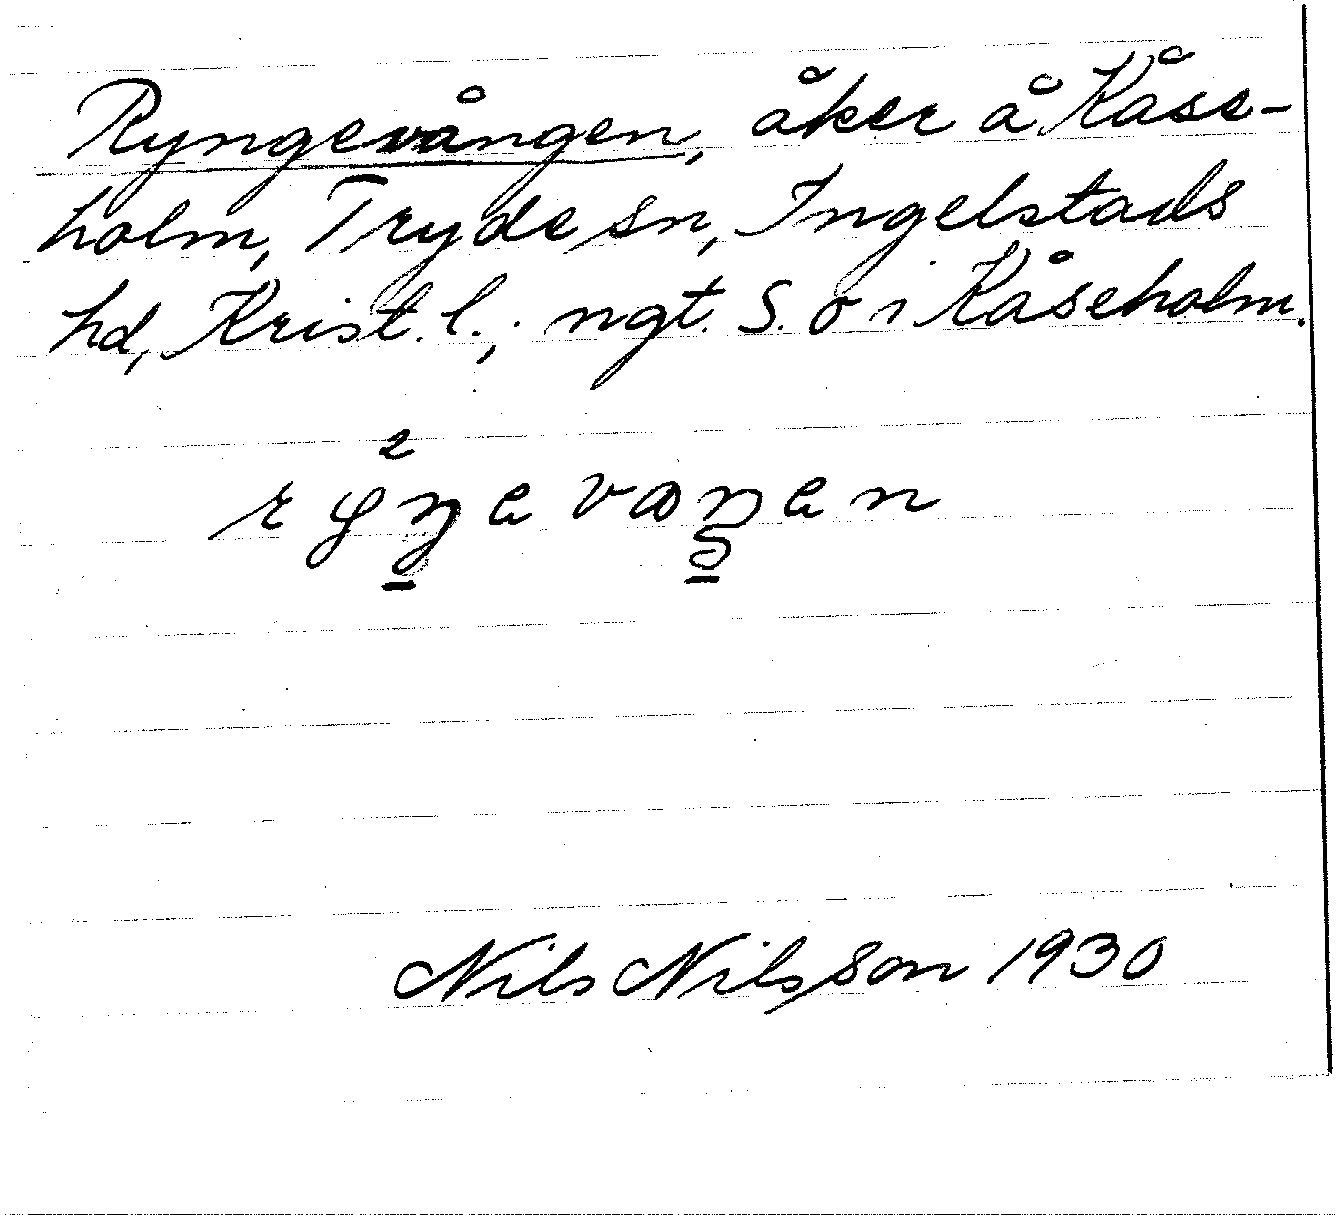 Ryngevången, åker å Kåse-
holm, Tryde sn, Ingelstads
hd, Krist. l.; ngt. S. o i Kåseholm.
Nils Nilsson 1930